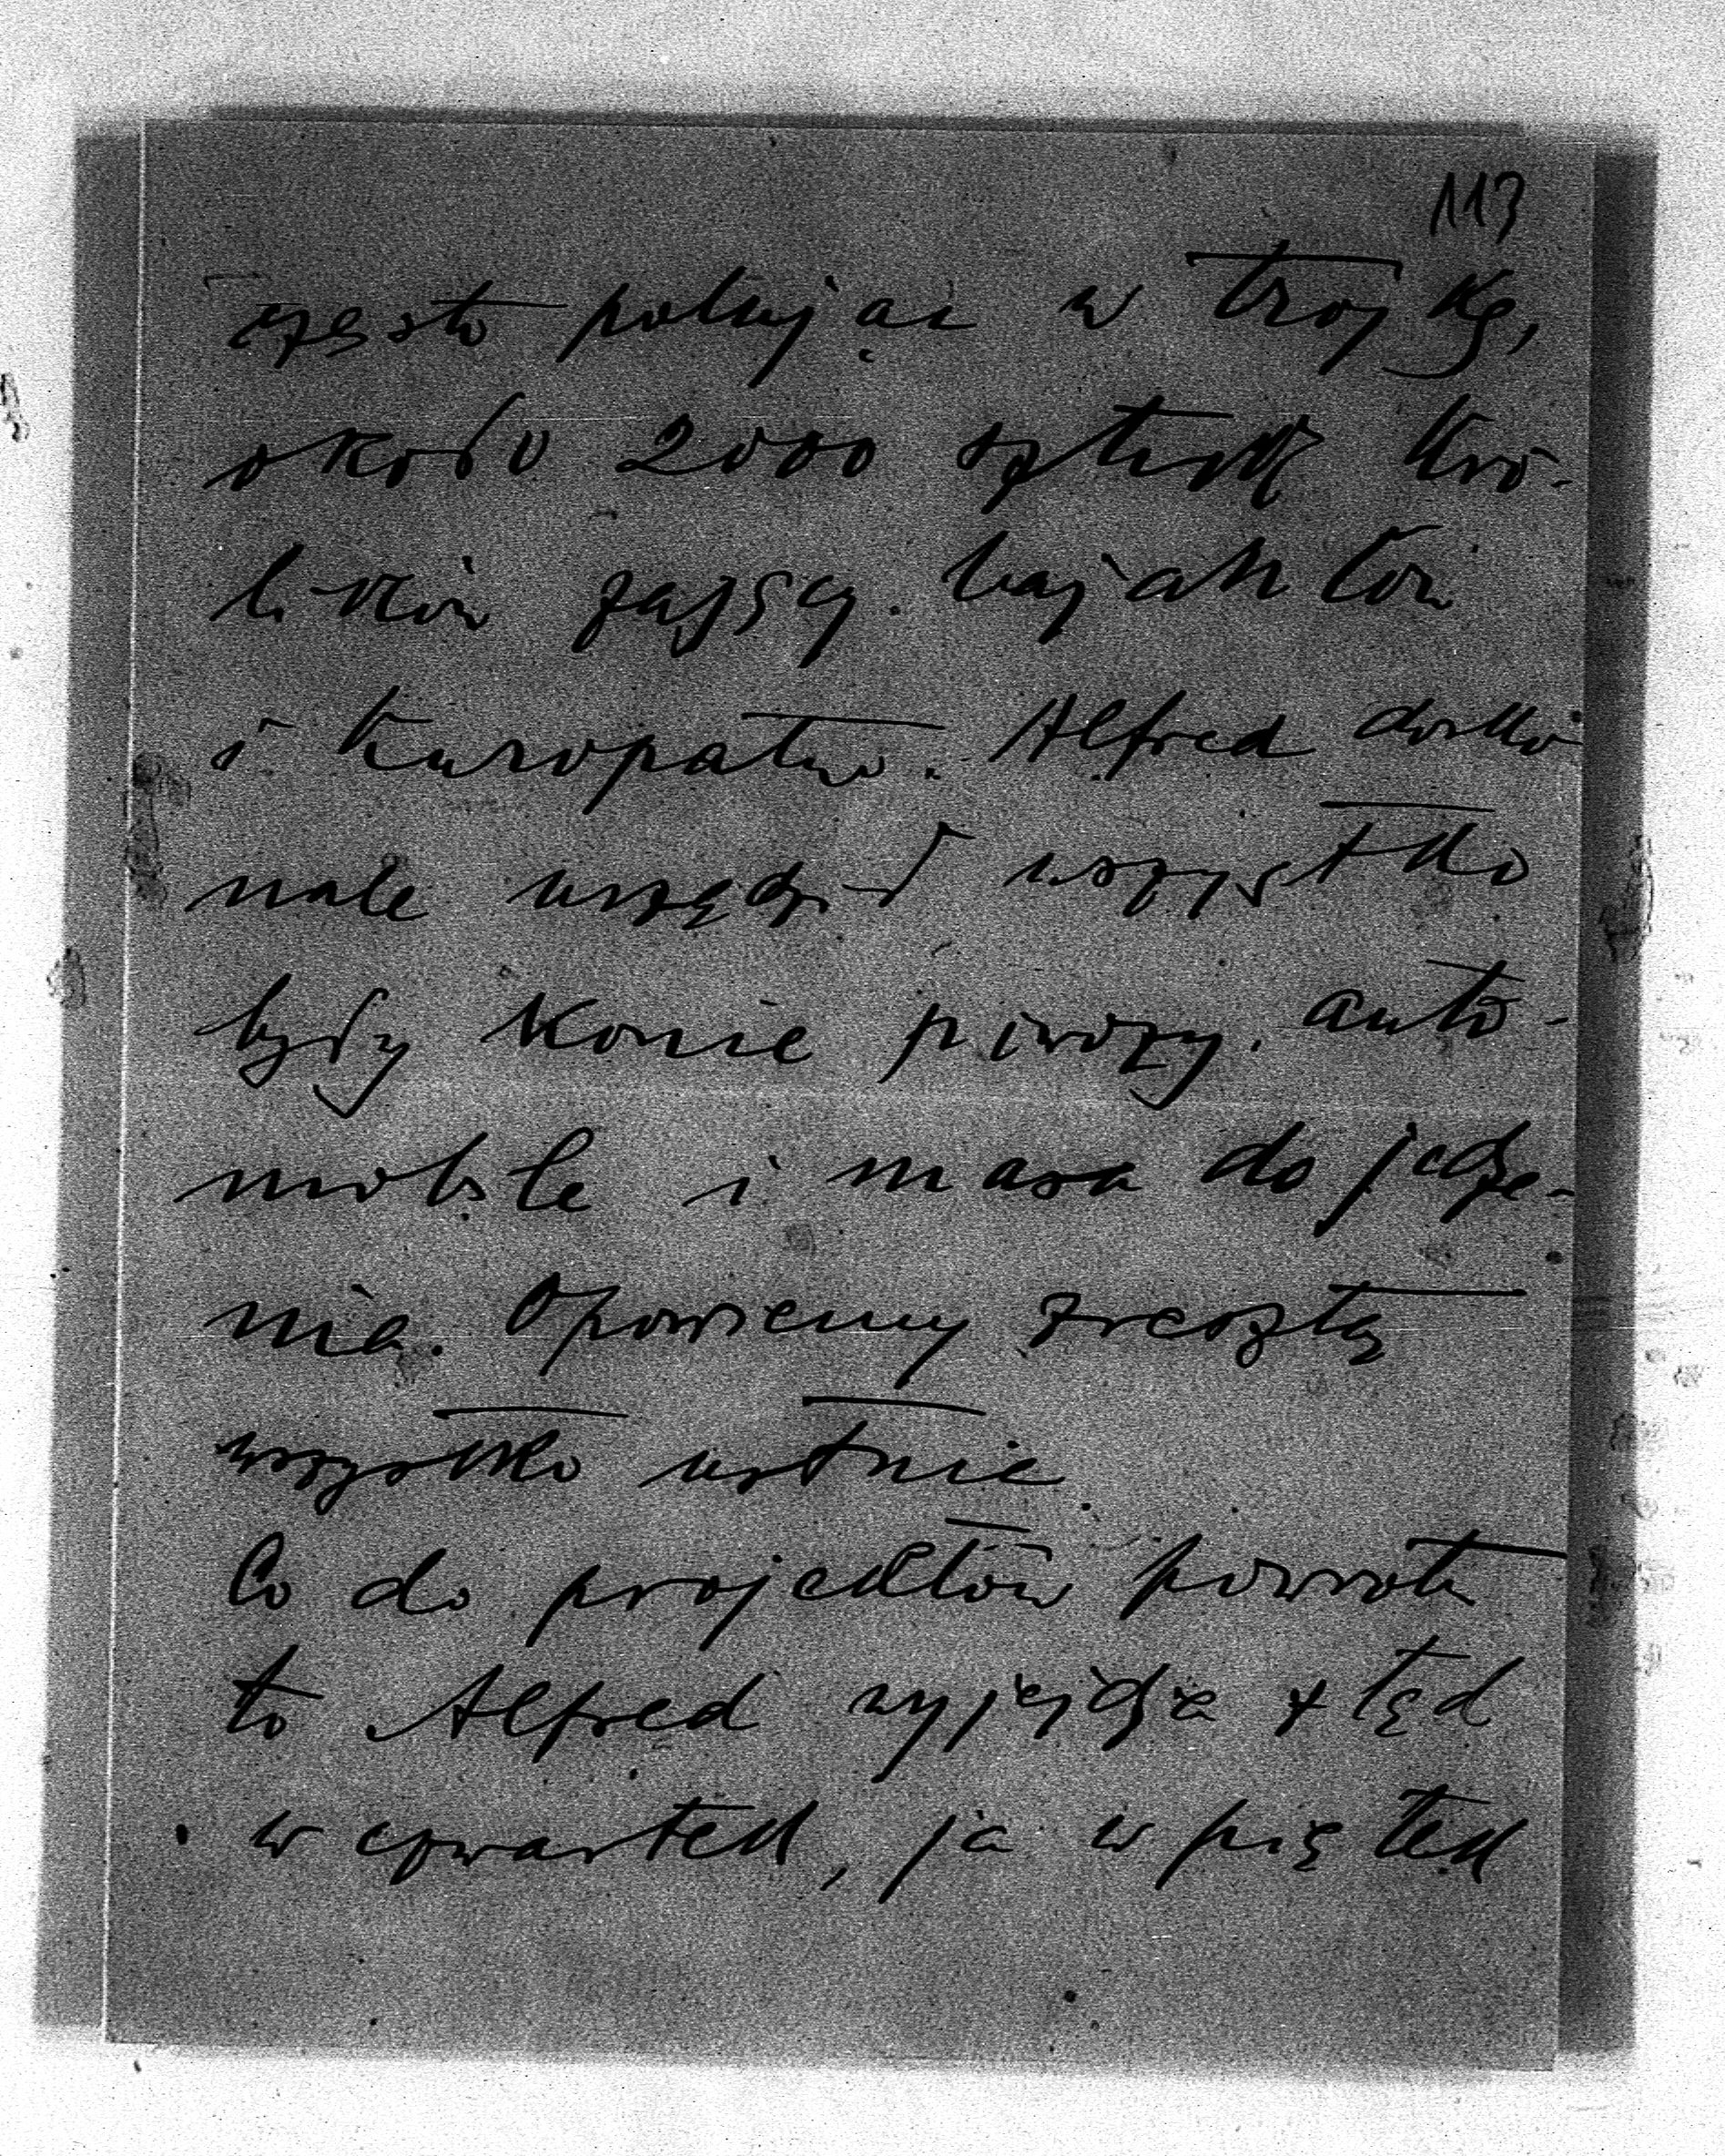 113
często polując w trojkę,
około 2000 sztuk kró-
lików zajęcy. bażantów
i kuropatw. Alfred dosko
nale urządził wszystko
były konie powozy, auto-
mobile i masa do jedze-
nia. Opowiemy zresztą
wszystko ustnie.
Co do projektów powrotu
to Alfred wyjeżdża ztąd
w czwartek, ja w piątek